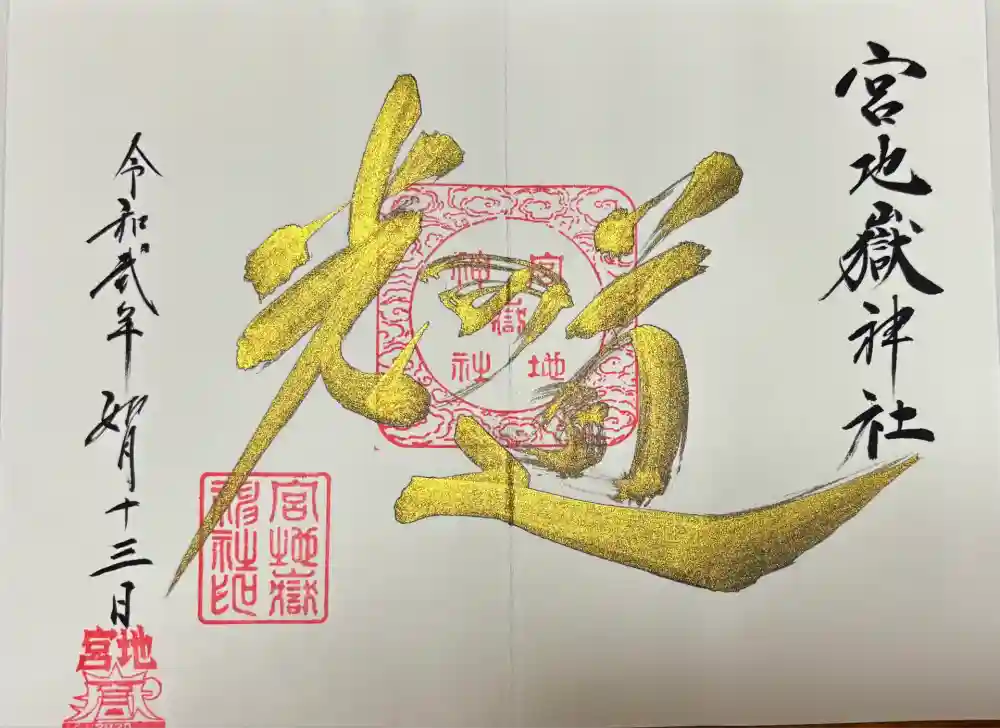 宮地嶽神社
光道
令和弐年如月十三日
宮地嶽神社
宮地嶽神社印
宮地嶽
2020